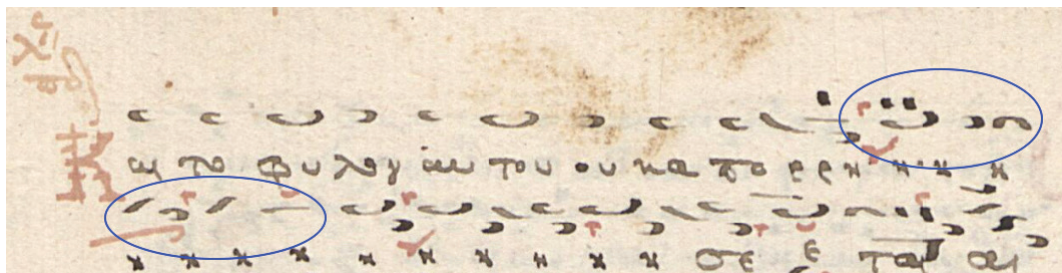 Και το φυ λογ αυ του ου κα πο ρρη η η η
η η η η η η η η η η σε ε τα αι